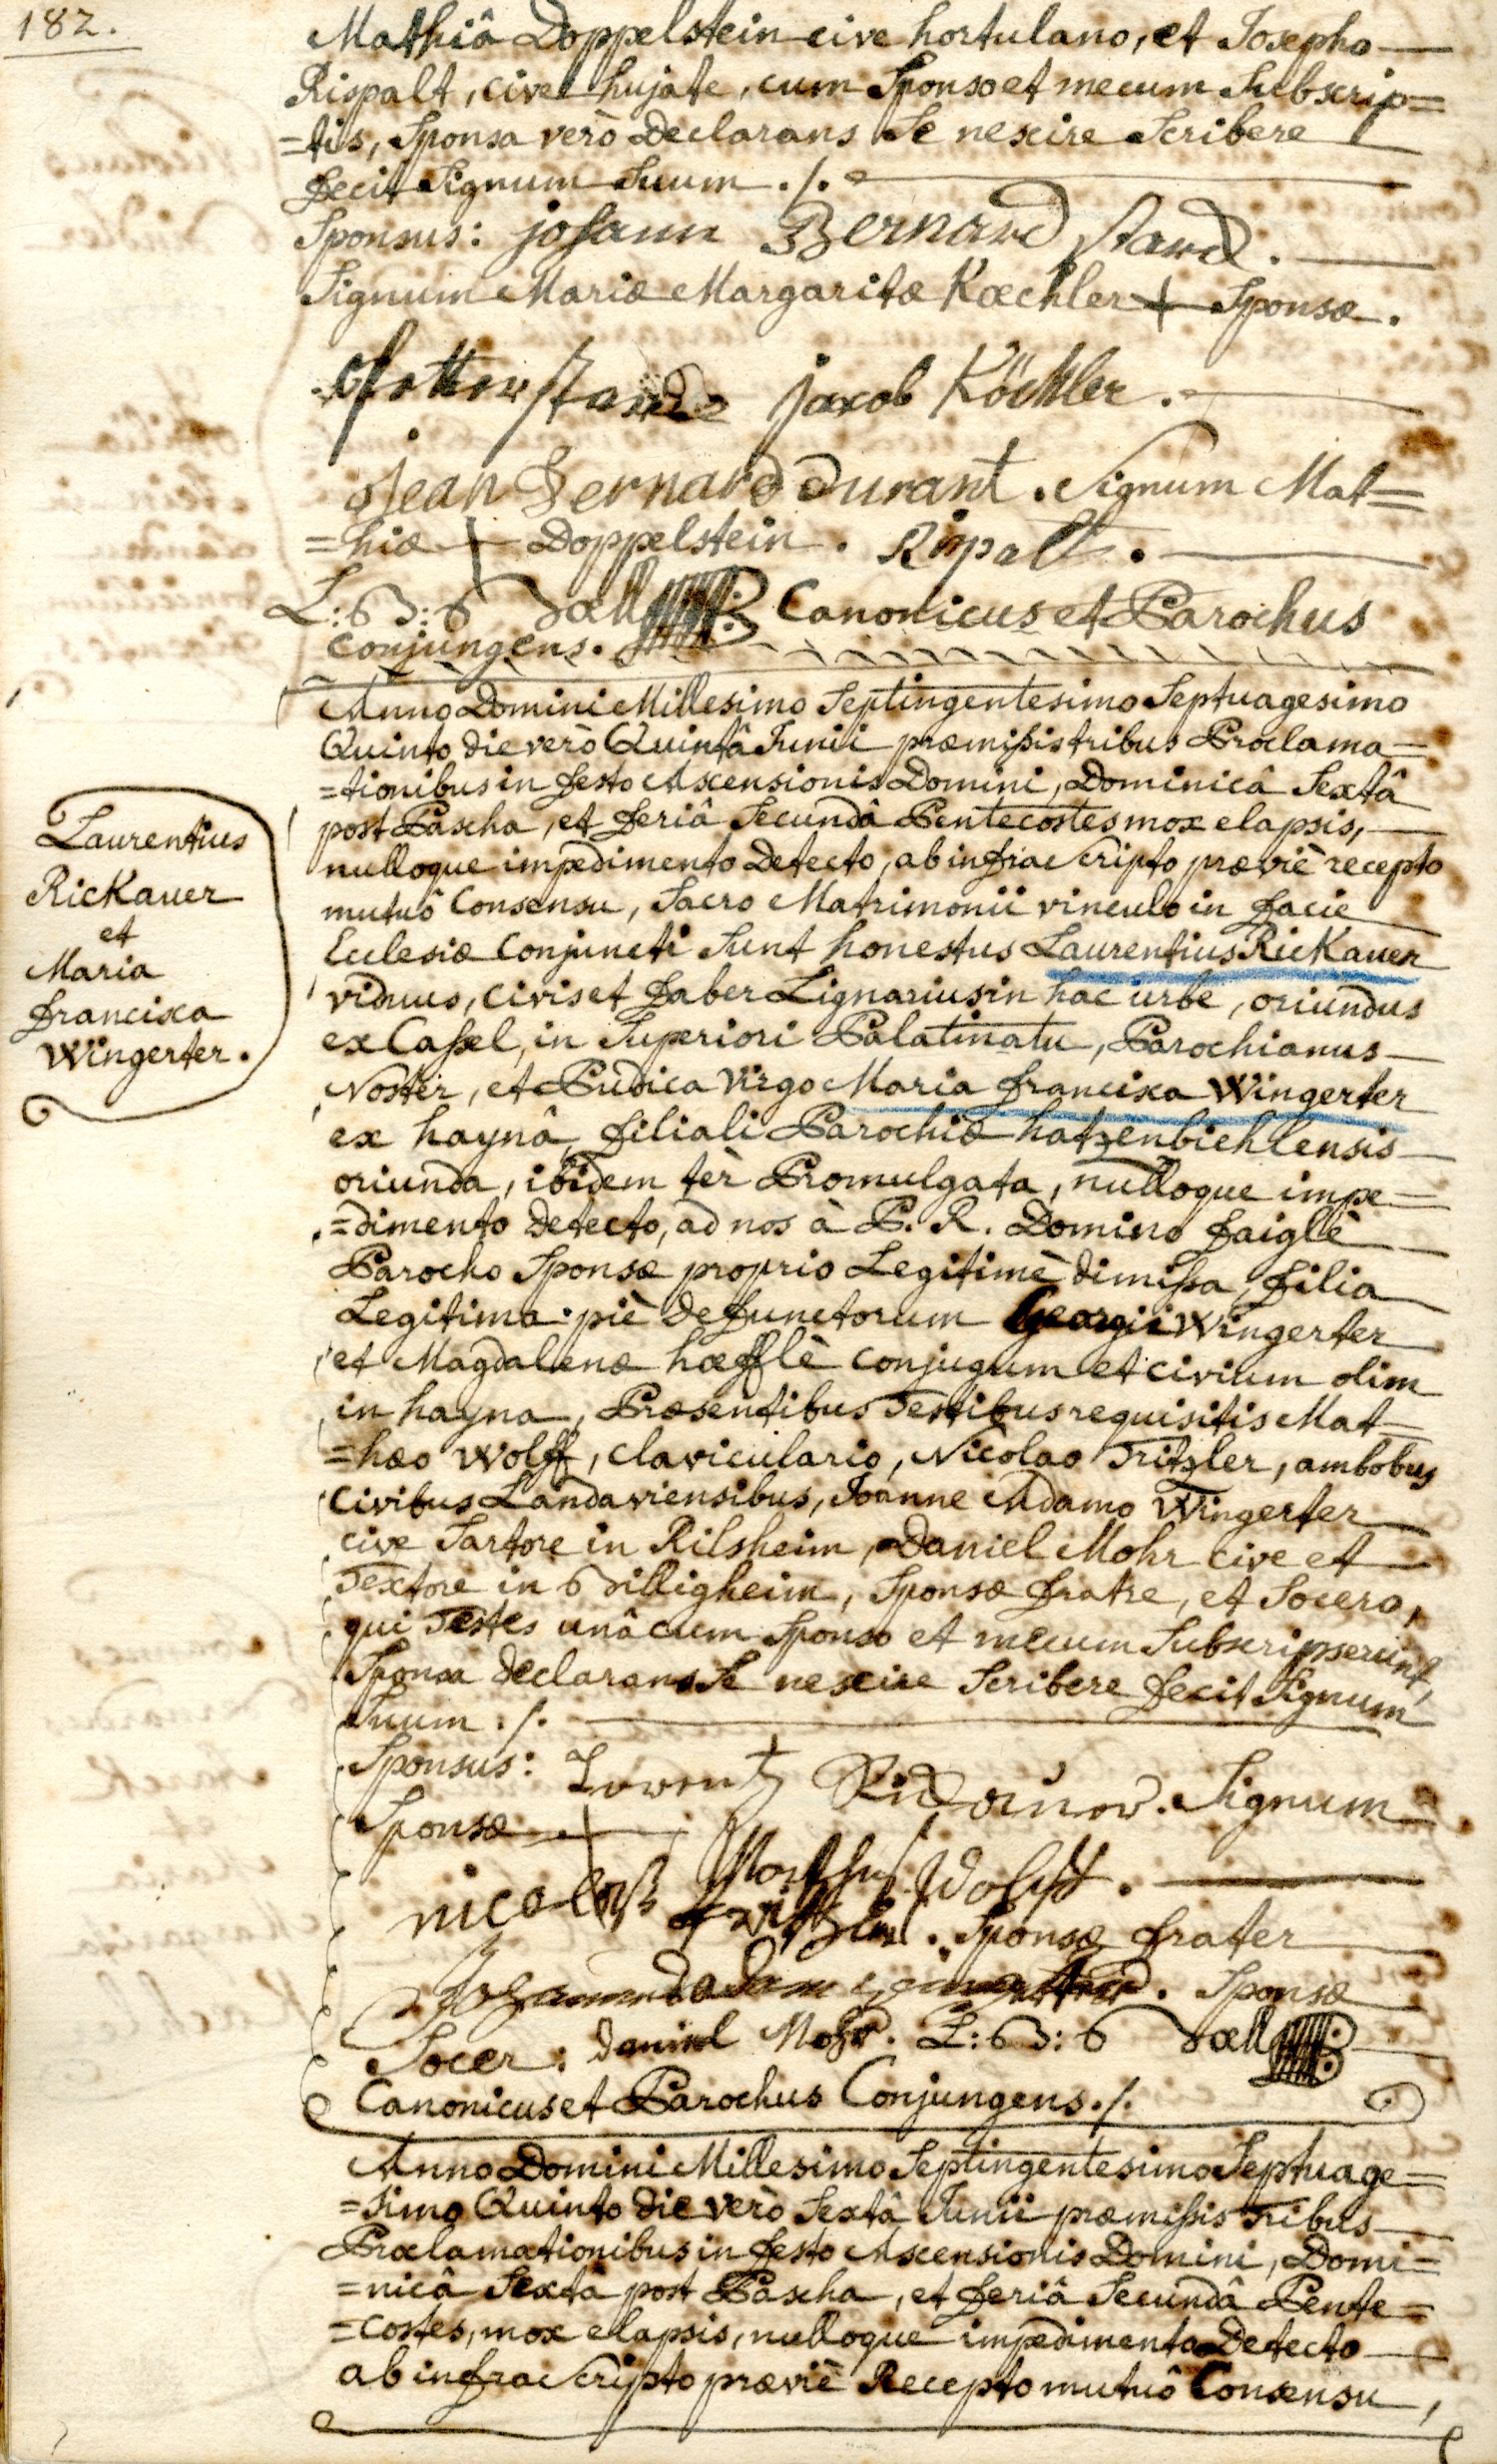 182.
Mathiâ Doppelstein cive hortulano, et Josepho
Rispalt, cive hujate, cum Sponso et mecum Subscrip=
=tis, Sponsa verò Declarans Se nescire Scribere
fecit Signum Suum ./.
Sponsus: johann Bernard Stard.
Signum Mariæ Margaritæ Kœchler + Sponsæ.
jacob Köchler.
Jean Bernard Durant. Signum Mat=
=hiæ + Doppelstein. Rispalt.
Canonicus et Parochus
Conjungens.
Anno Domini Millesimo Septingentesimo Septuagesimo
Quinto die verò Quintâ Junii præmissis tribus Proclama=
=tionibus in festo Ascensionis Domini, Dominicâ Sextâ
post Pascha, et feriâ Secundâ Pentecostes mox elapsis,
nulloque impedimento Detecto, ab infrascripto præviè recepto
mutuô Consensu, Sacro Matrimonii vinculo in facie
Ecclesiæ Conjuncti Sunt honestus Laurentius Rickauer
viduus, civis et faber Lignarius in hac urbe, oriundus
ex Cassel, in Superiori Palatinatu, Parochianus
Noster, et Pudica virgo Maria francisca Wingerter
ex haynâ, filiali Parochiæ hatzenbiehlensis
oriunda, ibidem tèr Promulgata, nulloque impe=
=dimento detecto, ad nos à P. R. Domino faiglè
Parocho Sponsæ proprio Legitimè dimissa, filia
Legitima piè defunctorum Georgii Wingerter
et Magdalenæ hæfflè conjugum et civium olim
in hayna, Præsentibus Testibus requisitis Mat=
=hæo Wolff, claviculario, Nicolao Tritzler, ambobus
Civibus Landaviensibus, Joanne Adamo Wingerter
cive Sartore in Rilsheim, Daniel Mohr cive et
Textore in Billigheim, Sponsæ fratre, et Socero,
qui Testes unâ cum Sponso et mecum Subscripserunt,
Sponsa declarans Se nescire Scribere fecit Signum
Suum ./.
Laurentius
Rickauer
et
Maria
francisca
Wingerter.
Sponsus: Lorentz Rickauer. Signum
Sponsæ +
Wolff.
nicolaß . Sponsæ frater
. Sponsæ
Socer: daniel Mohr.
Canonicus et Parochus Conjungens ./.
Anno Domini Millesimo Septingentesimo Septuage=
=simo Quinto die verò Sextâ Junii præmissis Tribus
Proclamationibus in festo Ascensionis Domini, Domi=
=nicâ Sextâ post Pascha, et feriâ Secundâ Pente=
=costes, mox elapsis, nulloque impedimento Detecto
ab infrascripto præviè Recepto mutuô Consensu,